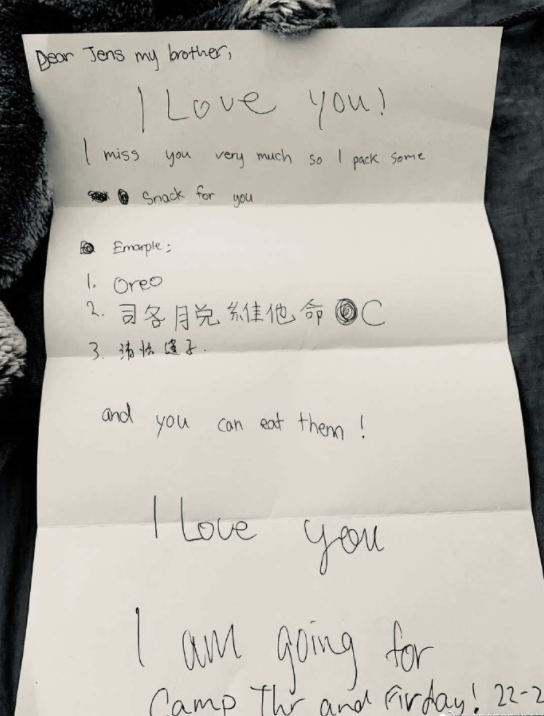 Dear Jens my brother,
I Love you!
I miss you very much so I pack some
Snack for you
Emarple:
1. Oreo
2. 司各脱維他命 C
3.
and you can eat them!
I Love you
I am going for
Camp Thr and Firday! 22-2